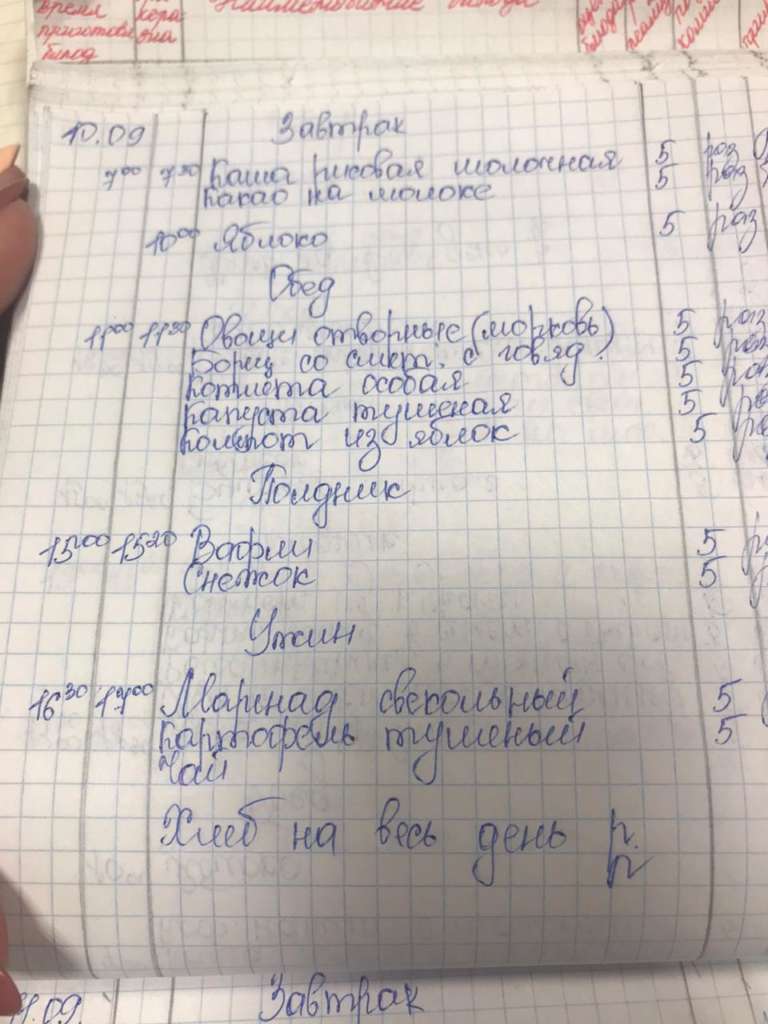 время
приготовл
блюд
10.09 Завтрак
7⁰⁰ 7³⁰ Каша рисовая молочная 5 раз
Какао на молоке 5 раз
10⁰⁰ Яблоко 5 раз
Обед
11⁰⁰ 11³⁰ Овощи отворные (морковь) 5 раз
Борщ со смет. с говяд. 5 раз
Котлета особая 5 раз
Капуста тушеная 5
Компот из яблок 5
Полдник
15⁰⁰ 15²⁰ Вафли 5
Снежок 5
Ужин
16³⁰ 17⁰⁰ Маринад свекольный 5
Картофель тушеный 5
Чай
Хлеб на весь день р.
р
.09. Завтрак